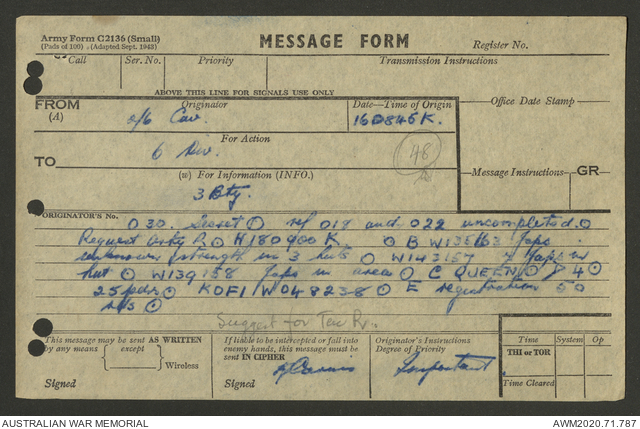 Army Form C2136 (Small)
(Pads of 100). (Adapted Sept. 1943)
MESSAGE FORM
Register No.
Call Ser. No. Priority Transmission Instructions
ABOVE THIS LINE FOR SIGNALS USE ONLY
FROM Originator Date—Time of Origin Office Date Stamp
(A) 2/6 Cav. 160845K.
For Action
TO 6 Div. 48
(w) For Information (INFO.) Message Instructions GR
3 Bty.
ORIGINATOR'S No.
O 30. Secret ⊙ ref 018 and 022 uncompleted ⊙
Request Arty R ⊙ H 180900K ⊙ B W135163 Japs
unknown strength in 3 huts ⊙ W143157 Japs in
hut ⊙ W139158 Japs in area ⊙ C QUEEN ⊙ D 4 ⊙
25 pdrs ⊙ KOFI W048238 ⊙ E registration 50
rds ⊙
Suggest for Tac R.
This message may be sent AS WRITTEN
by any means { except }
Wireless
Signed
If liable to be intercepted or fall into
enemy hands, this message must be
sent IN CIPHER
Signed
Originator's Instructions
Degree of Priority
Important
Time System Op
THI or TOR
Time Cleared
AUSTRALIAN WAR MEMORIAL AWM2020.71.787